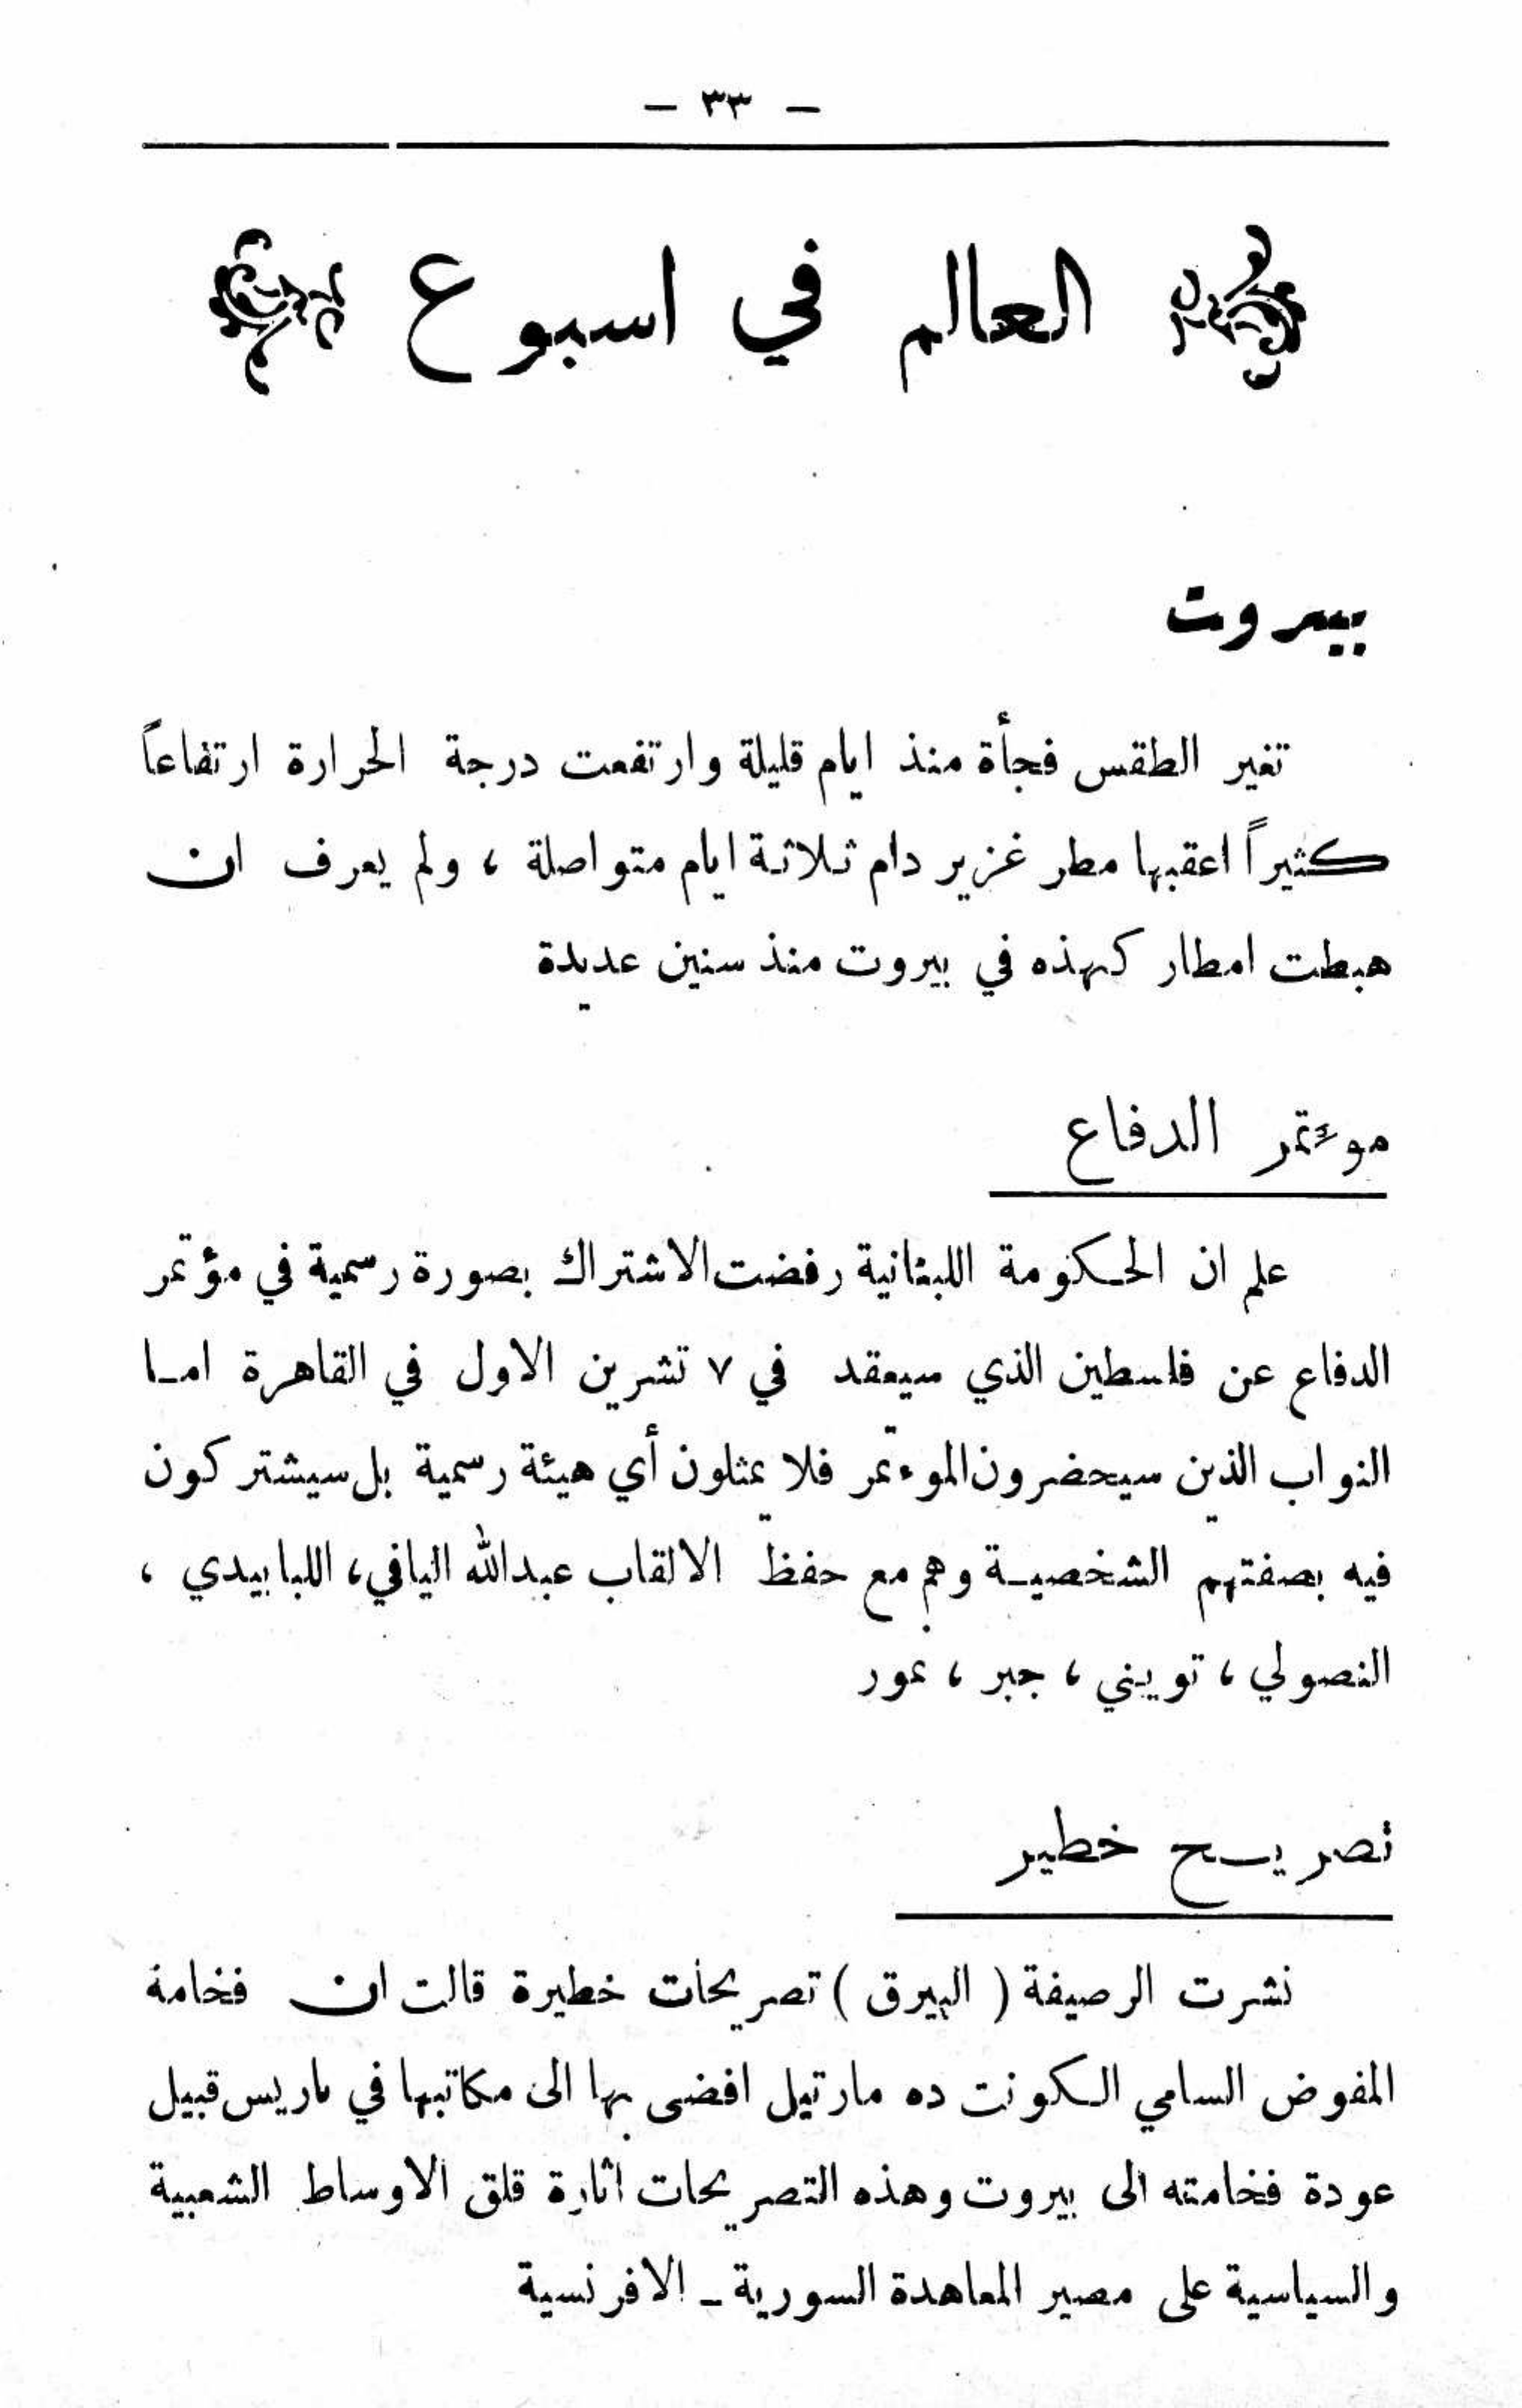 — ٣٣ —
العالم في اسبوع
بيروت
تغير الطقس فجأة منذ ايام قليلة وارتفعت درجة الحرارة ارتفاعاً
كثيراً اعقبها مطر غزير دام ثلاثة ايام متواصلة ، ولم يعرف ان
هبطت امطار كهذه في بيروت منذ سنين عديدة
موءتمر الدفاع
علم ان الحكومة اللبنانية رفضت الاشتراك بصورة رسمية في مؤتمر
الدفاع عن فلسطين الذي سيعقد في ٧ تشرين الاول في القاهرة اما
النواب الذين سيحضرون الموءتمر فلا يمثلون أي هيئة رسمية بل سيشتركون
فيه بصفتهم الشخصية وهم مع حفظ الالقاب عبدالله اليافي ، اللبابيدي ،
النصولي ، تويني ، جبر ، عمور
تصريح خطير
نشرت الرصيفة ( البيرق ) تصريحات خطيرة قالت ان فخامة
المفوض السامي الكونت ده مارتيل افضى بها الى مكاتبها في باريس قبيل
عودة فخامته الى بيروت وهذه التصريحات اثارة قلق الاوساط الشعبية
والسياسية على مصير المعاهدة السورية ـ الافرنسية